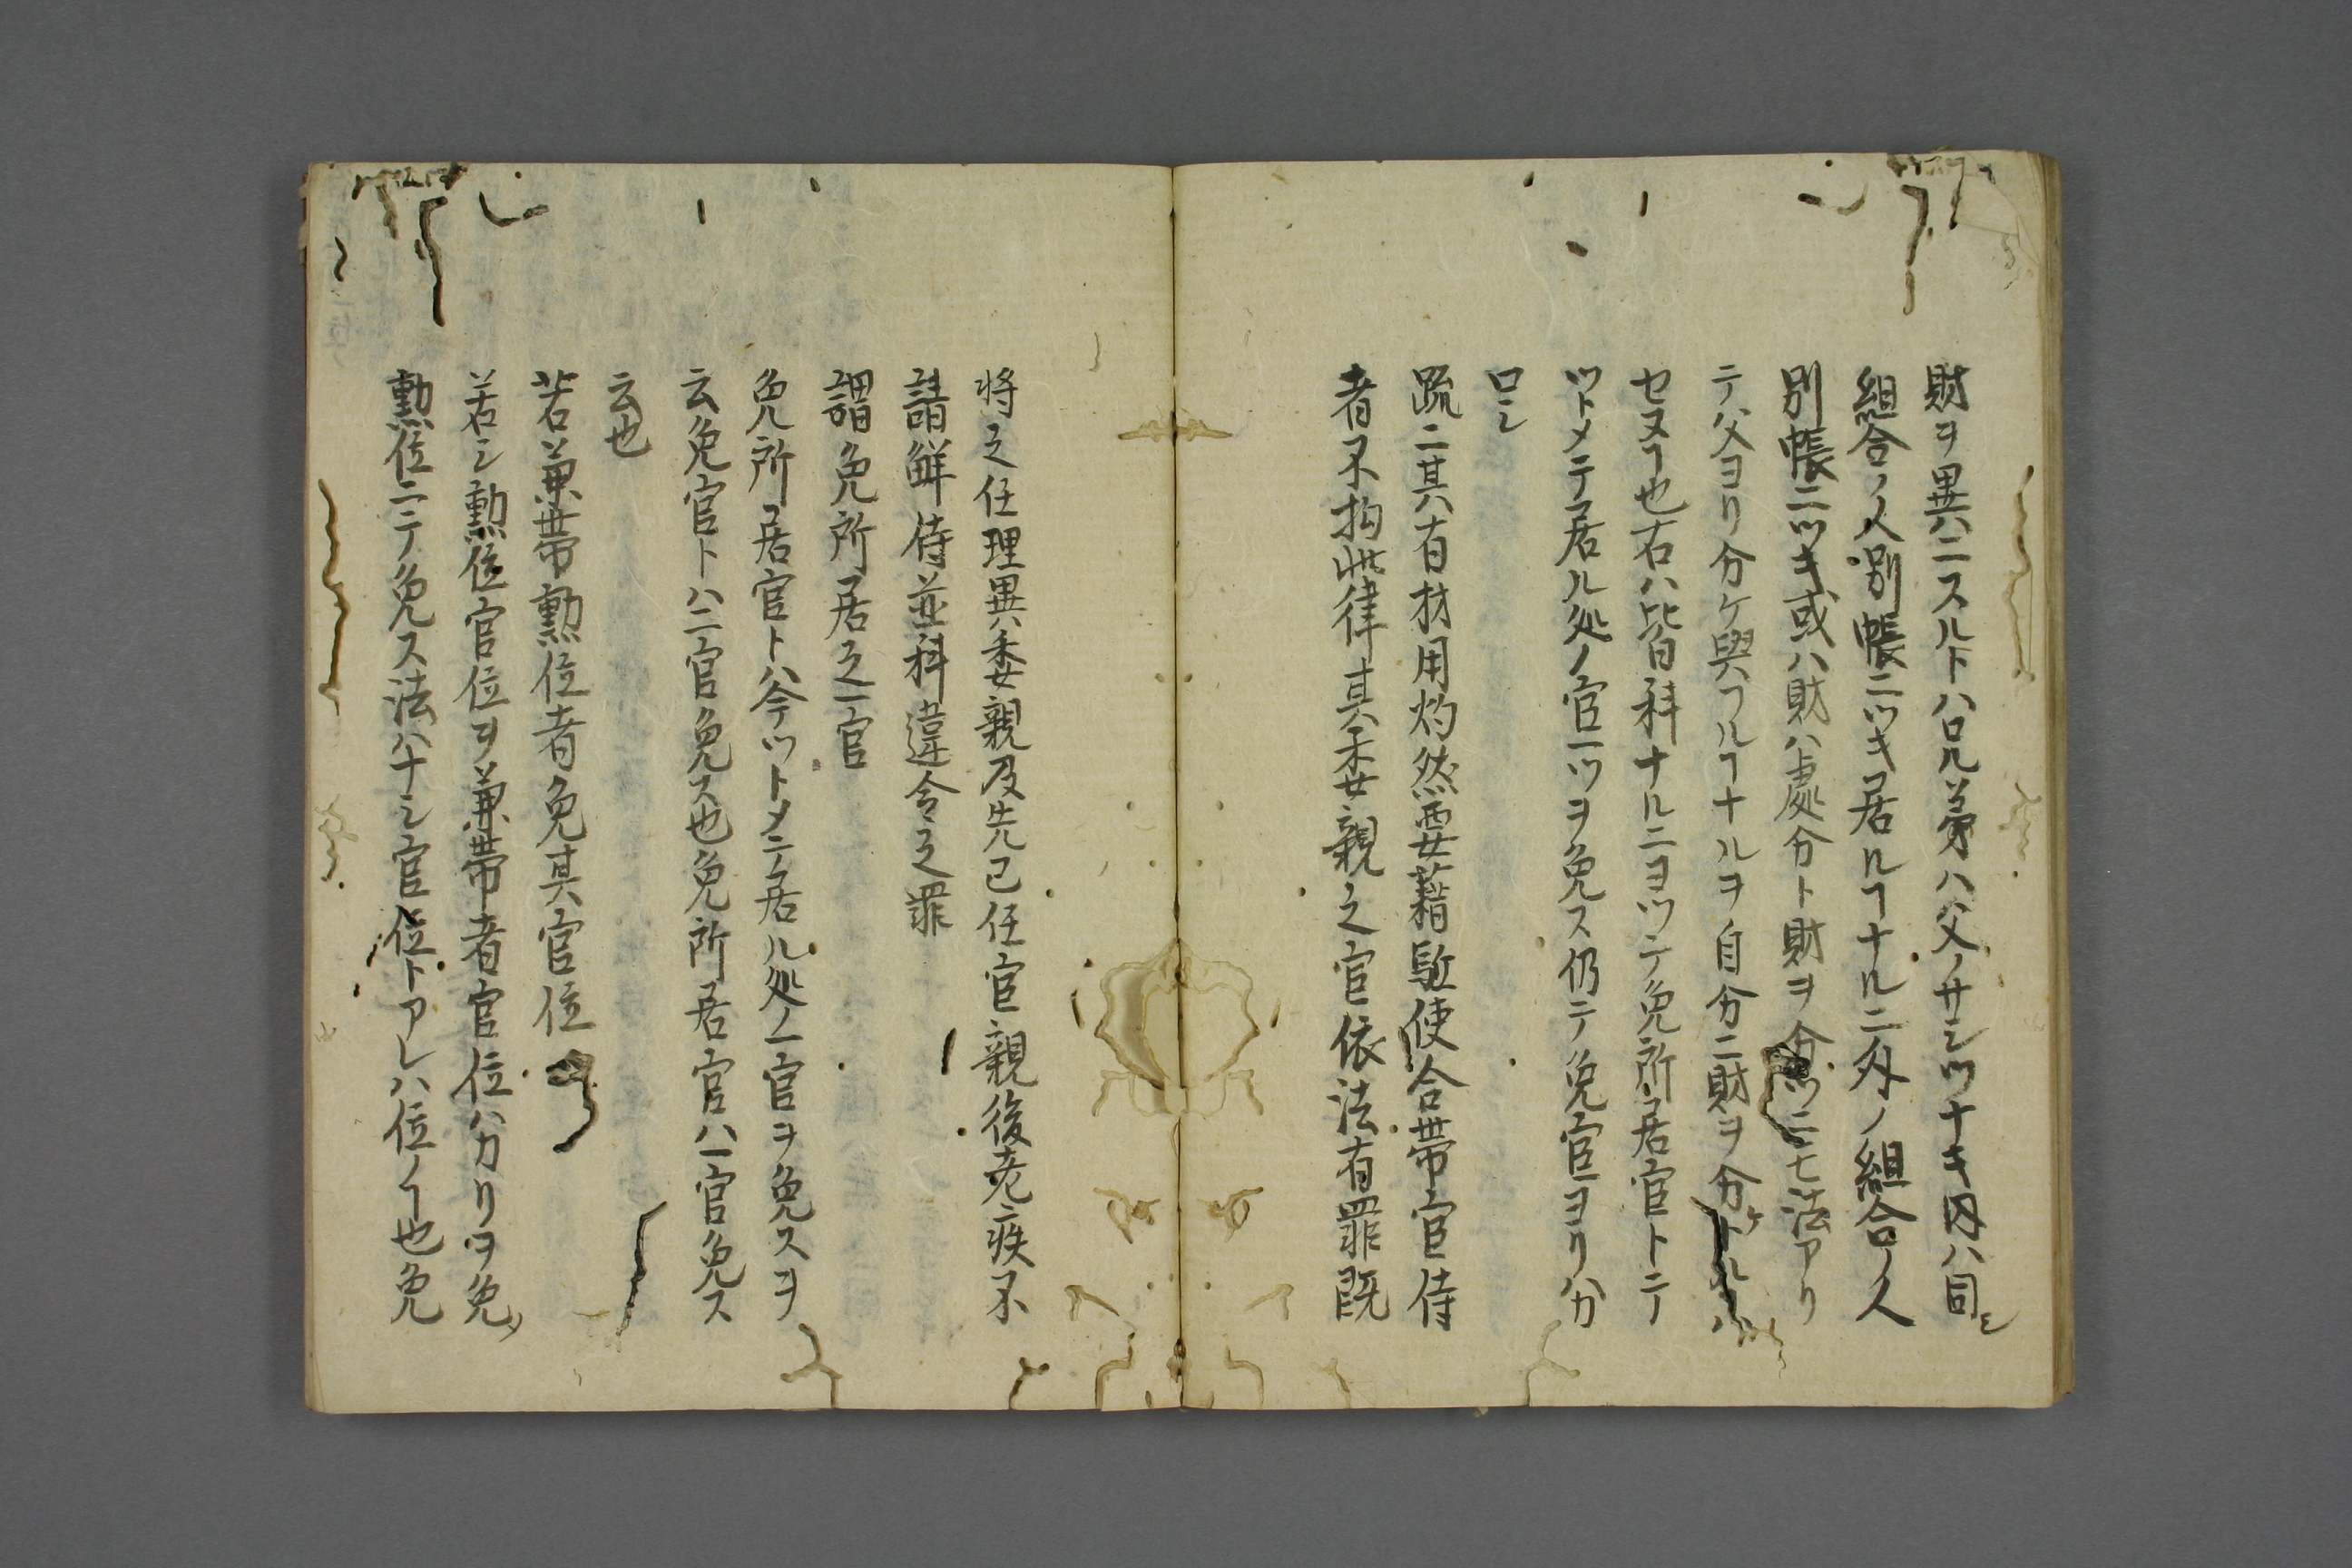 財ヲ異ニスル下ハ兄弟ハ父ノサシツナキ因ハ同シ
組合ノ人別帳ニツキ居ルヿナルニ外ノ組合ノ人
別帳ニツキ或ハ財ハ處分ト財ヲ分ツニモ法アリ
テ父ヨリ分ケ與フルヿナルヲ自分ニ財ヲ分ケトルハ
セヌヿ也右ハ皆科ナルニヨツテ免所居官トニテ
ツトメテ居ル処ノ官一ツヲ免ス仍テ免官ヨリハカ
ロシ
疏ニ其有材用灼然要藉駈使令帯官侍
者不拘此律其委親之官依法有罪既
将之任理異委親及先已任官親後老疾不
請解侍並科違令之罪
謂免所居之一官
免所居官トハ今ツトメテ居ル処ノ一官ヲ免スヲ
云免官トハ二官免ス也免所居官ハ一官免ス
云也
若兼帯勲位者免其官位
若シ勲位官位ヲ兼帯者官位ハカリヲ免
勲位ニテ免ス法ハナシ官位トアレハ位ノヿ也免